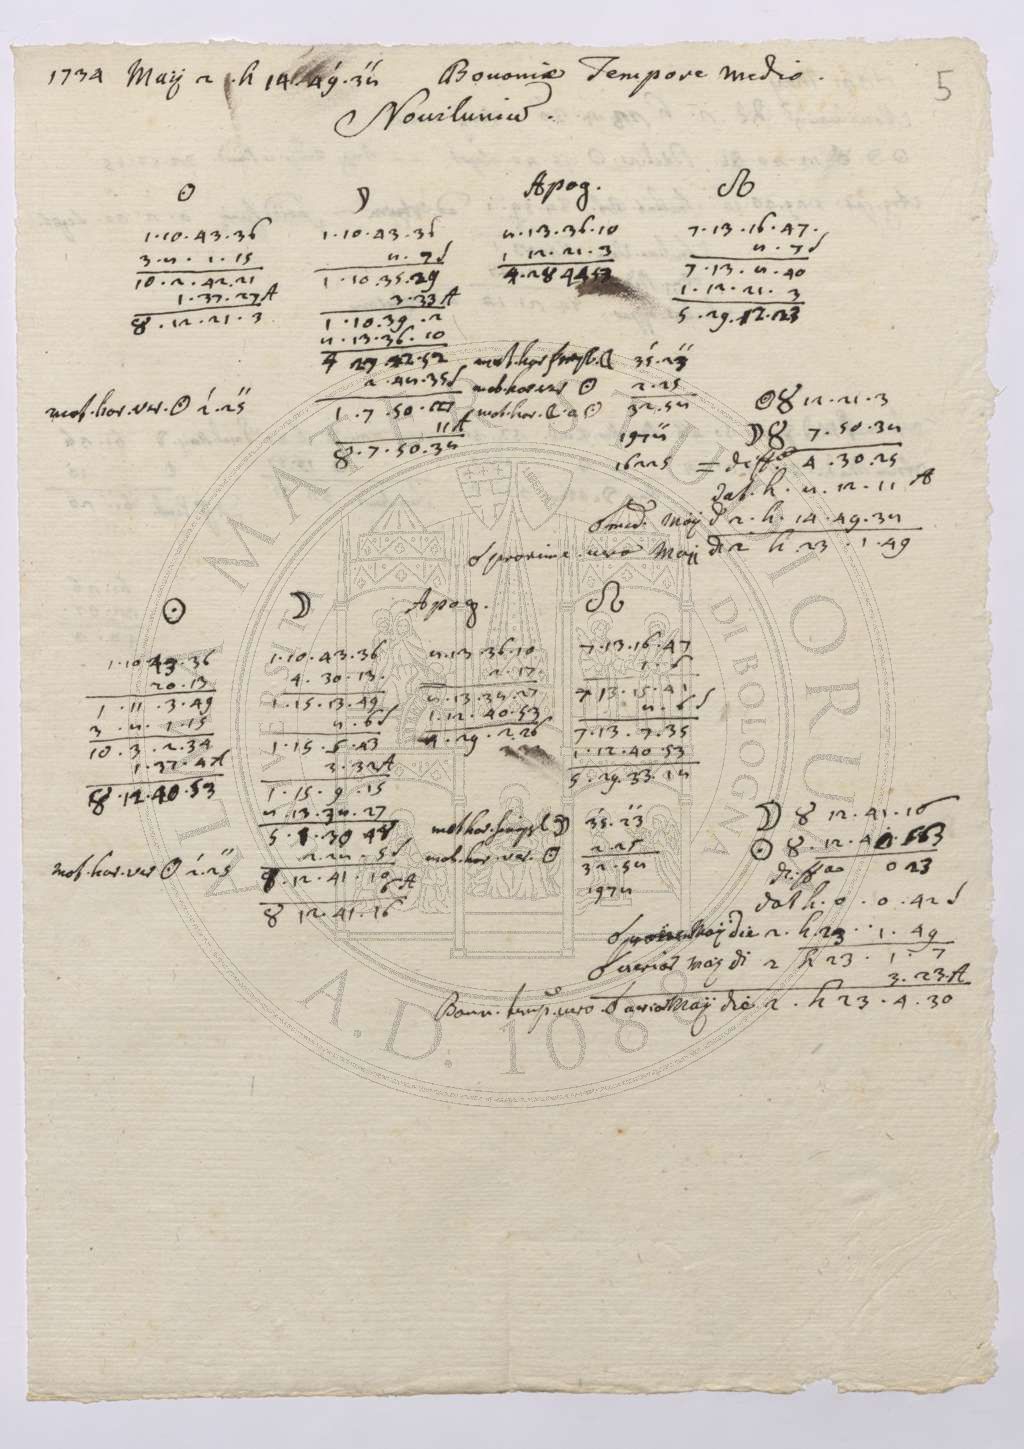 1734 Maij 2 . h 14 . 49 . 34 Bononiæ Tempore medio .
5
Noviluniū .
☉ ☽ Apog. ☊
1 . 10 . 43 . 36 1 . 10 . 43 . 36 5 . 13 . 36 . 10 7 . 13 . 16 . 47 .
3 . 5 . 1 . 15 5 . 7 d 1 12 . 21 . 3 5 . 7 d
10 . 2 . 42 . 21 1 . 10 . 35 . 29 4 . 28 44 53 7 . 13 . 5 . 40
1 . 37 . 27 A 3 . 33 A 1 . 12 . 21 . 3
♉ . 12 . 21 . 3 1 . 10 . 39 . 2 5 . 29 . 12 . 23
5 . 13 . 36 . 10
4 27 42 . 52 35 . 23
2 . 45 . 35 d mot. hor. ver ☉ 2 . 25 ☉ ♉ 12 . 21 . 3
mot. hor. ver. ☉ 2 . 25 1 . 7 . 50 . mot. hor. ☾ a ☉ 32 . 54
11 A 1974 ☽ ♉ 7 . 50 . 34
♉ . 7 . 50 . 34 16225 = diffa 4 . 30 . 25
dat . h . 5 . 12 . 11 A
☌ med. Maij d 2 . h . 14 . 49 . 34
☌ proxime vero Maij di 2 h 23 . 1 . 49
☉ ☽ Apog. ☊
1 . 10 43 . 36 1 . 10 . 43 . 36 5 . 13 36 . 10 7 . 13 . 16 . 47
20 . 13 4 . 30 . 13 . 2 . 17 . 1 . 6
1 . 11 . 3 . 49 1 . 15 . 13 . 49 5 . 13 . 34 . 27 7 13 . 15 . 41
3 . 5 . 1 . 15 5 . 6 d 1 . 12 . 40 . 53 5 . 6 d
10 . 3 . 2 . 34 1 . 15 . 5 . 43 4 . 29 . 2 26 7 . 13 . 7 . 35
1 . 37 . 4 A 3 . 32 A 1 . 12 . 40 . 53
♉ . 12 . 40 . 53 1 . 15 . 9 . 15 5 . 29 . 33 . 14
5 13 . 34 . 27 ☽ ♉ 12 . 41 . 16
5 . 1 . 30 48 mot hor. ☽ 35 . 23
2 . 24 . 5 d mot. hor. ver. ☉ 2 . 25 ☉ . ♉ . 12 . 40 53
mot. hor. ver ☉ 2 . 25 ♉ . 12 . 41 . 10 32 . 54 diffa 0 23
6 A 1974
♉ 12 . 41 . 16 dat h . 0 . 0 . 42 d
Maij die 2 . h 23 . 1 . 49
Maij di 2 h 23 . 1 . 7
3 . 23 A
Bonon. temp. vero ☌ Maij die 2 . h 23 . 4 . 30
ALMA MATER STUDIORUM
UNIVERSITÀ DI BOLOGNA
A.D. 1088